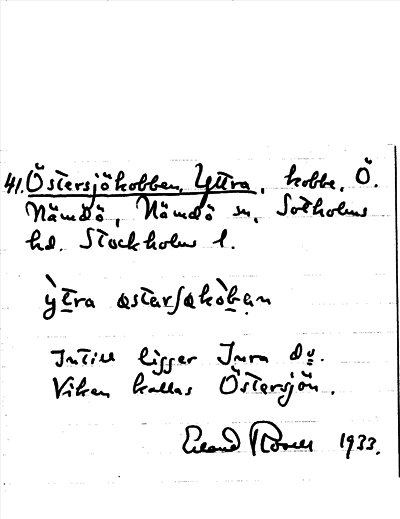 41. Östersjökobben, Yttra, kobbe, Ö.
Nämdö, Nämdö sn, Sotholms
hd. Stockholms l.
ỳtra œstarʃœkòban
Intill ligger Inra dy.
Viken kallas Östersjön.
Erland 1933.